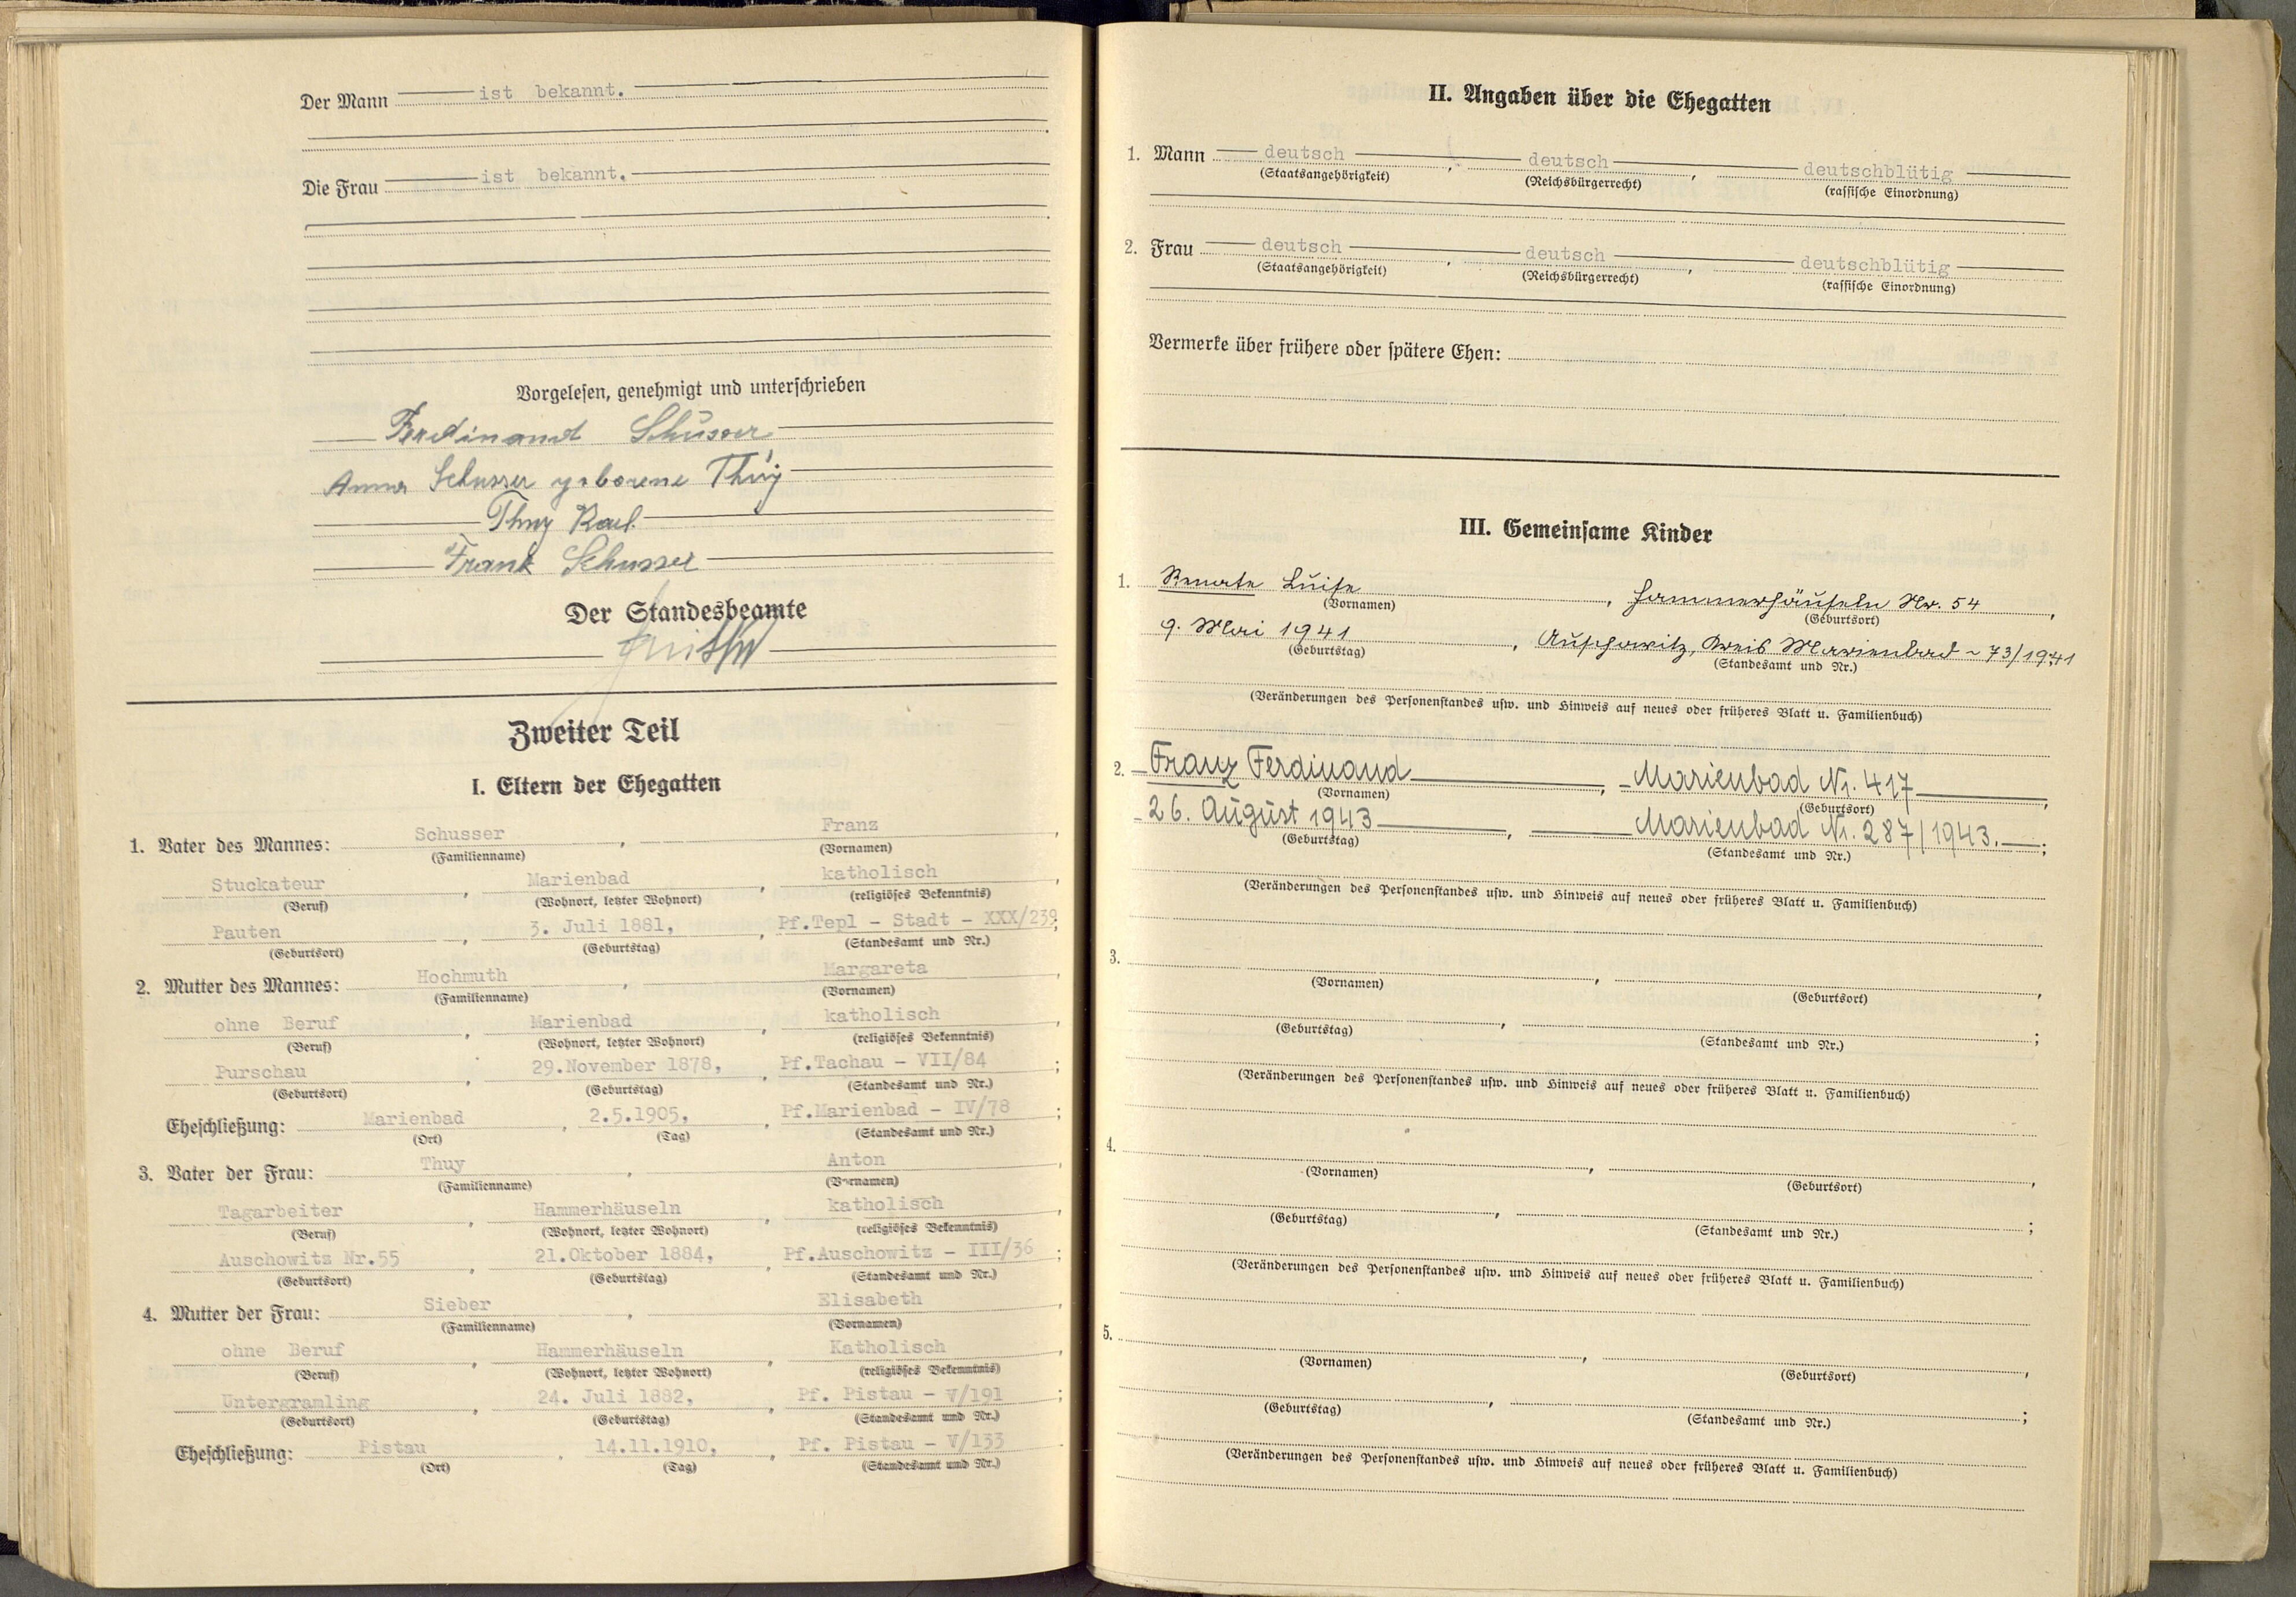 Der Mann ist bekannt.
Die Frau ist bekannt.
Vorgelesen, genehmigt und unterschrieben
Ferdinand Schusser
Anna Schusser geborene Thuy
Thuy Karl
Frank Schusser
Der Standesbeamte
Zweiter Teil
I. Eltern der Ehegatten
1. Vater des Mannes: Schusser, Franz,
(Familienname) (Vornamen)
Stuckateur, Marienbad, katholisch,
(Beruf) (Wohnort, letzter Wohnort) (religiöses Bekenntnis)
Pauten, 3. Juli 1881, Pf.Tepl - Stadt - XXX/239;
(Geburtsort) (Geburtstag) (Standesamt und Nr.)
2. Mutter des Mannes: Hochmuth, Margareta,
(Familienname) (Vornamen)
ohne Beruf, Marienbad, katholisch,
(Beruf) (Wohnort, letzter Wohnort) (religiöses Bekenntnis)
Purschau, 29.November 1878, Pf.Tachau - VII/84;
(Geburtsort) (Geburtstag) (Standesamt und Nr.)
Eheschließung: Marienbad, 2.5.1905, Pf.Marienbad - IV/78;
(Ort) (Tag) (Standesamt und Nr.)
3. Vater der Frau: Thuy, Anton,
(Familienname) (Vornamen)
Tagarbeiter, Hammerhäuseln, katholisch,
(Beruf) (Wohnort, letzter Wohnort) (religiöses Bekenntnis)
Auschowitz Nr.55, 21.Oktober 1884, Pf.Auschowitz - III/36;
(Geburtsort) (Geburtstag) (Standesamt und Nr.)
4. Mutter der Frau: Sieber, Elisabeth,
(Familienname) (Vornamen)
ohne Beruf, Hammerhäuseln, Katholisch,
(Beruf) (Wohnort, letzter Wohnort) (religiöses Bekenntnis)
Untergramling, 24. Juli 1882, Pf. Pistau - V/191;
(Geburtsort) (Geburtstag) (Standesamt und Nr.)
Eheschließung: Pistau, 14.11.1910, Pf. Pistau - V/133
(Ort) (Tag) (Standesamt und Nr.)
II. Angaben über die Ehegatten
1. Mann deutsch, deutsch, deutschblütig
(Staatsangehörigkeit) (Reichsbürgerrecht) (rassische Einordnung)
2. Frau deutsch, deutsch, deutschblütig
(Staatsangehörigkeit) (Reichsbürgerrecht) (rassische Einordnung)
Vermerke über frühere oder spätere Ehen:
III. Gemeinsame Kinder
1. Renate Luise, Hammerhäuseln Nr. 54,
(Vornamen) (Geburtsort)
9. Mai 1941, Auschowitz, Kreis Marienbad - 73/1941
(Geburtstag) (Standesamt und Nr.)
(Veränderungen des Personenstandes usw. und Hinweis auf neues oder früheres Blatt u. Familienbuch)
2. Franz Ferdinand, Marienbad Nr. 417,
(Vornamen) (Geburtsort)
26. August 1943, Marienbad Nr. 287/1943.;
(Geburtstag) (Standesamt und Nr.)
(Veränderungen des Personenstandes usw. und Hinweis auf neues oder früheres Blatt u. Familienbuch)
3.
(Vornamen) (Geburtsort)
(Geburtstag) (Standesamt und Nr.)
(Veränderungen des Personenstandes usw. und Hinweis auf neues oder früheres Blatt u. Familienbuch)
4.
(Vornamen) (Geburtsort)
(Geburtstag) (Standesamt und Nr.)
(Veränderungen des Personenstandes usw. und Hinweis auf neues oder früheres Blatt u. Familienbuch)
5.
(Vornamen) (Geburtsort)
(Geburtstag) (Standesamt und Nr.)
(Veränderungen des Personenstandes usw. und Hinweis auf neues oder früheres Blatt u. Familienbuch)